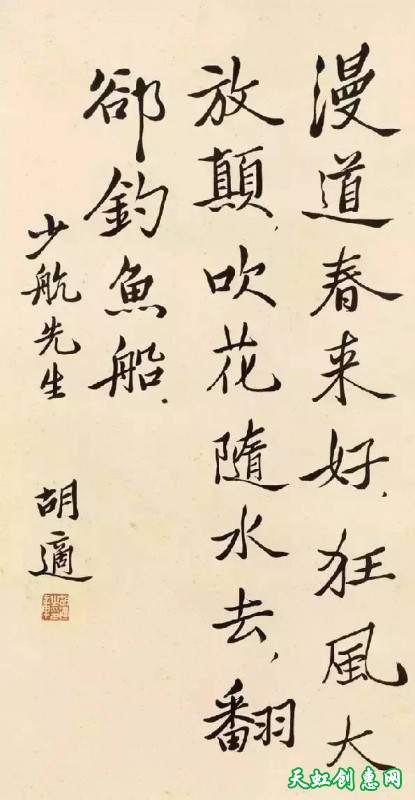 漫道春来好，狂風大
放顛，吹花隨水去，翻
郤釣魚船．
少航先生
胡適
天虹创惠网